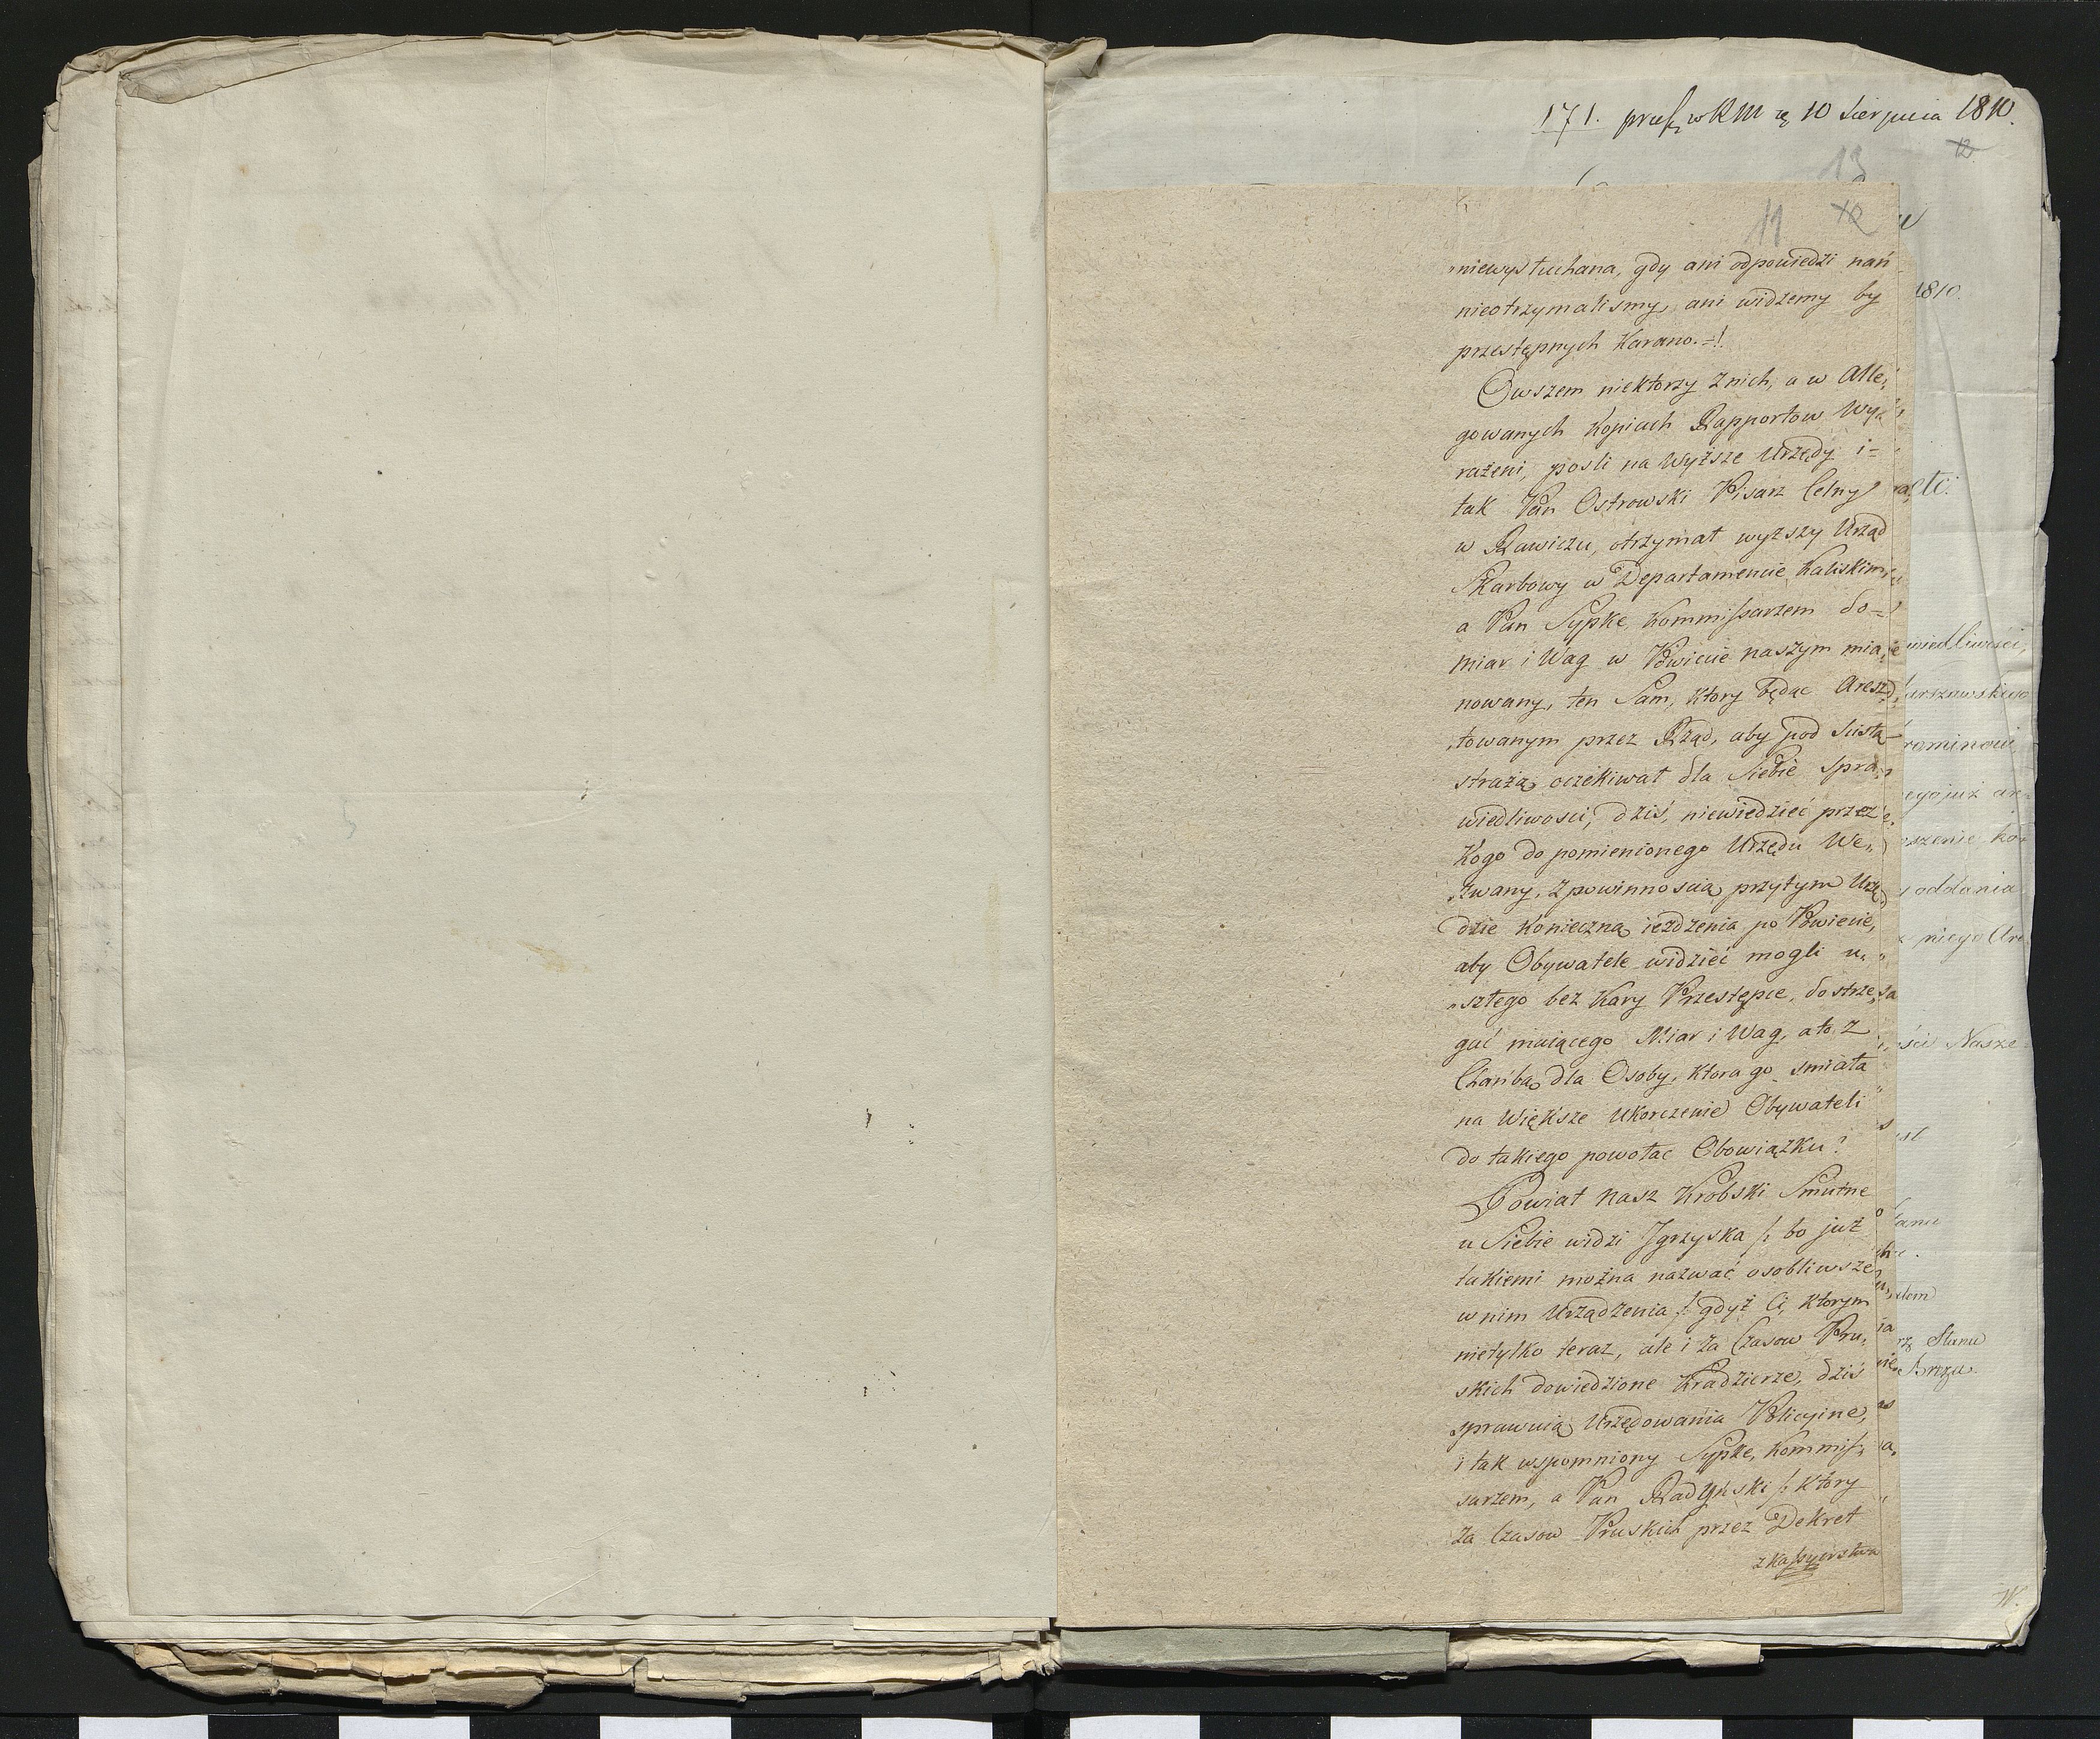 171. pres. w KM rę 10 Sierpnia 1810.
12
13
11 12
1810.
niewysłuchana, gdy ani odpowiedzi nań
nieotrzymaliśmy, ani widzemy by
przestępnych karano.=!
Owszem niektorzy z nich, a w Alle„
gowanych kopiach Rapportow Wy„
rażeni, posli na Wyższe Urzędy i=
tak Pan Ostrowski Pisarz Celny
w Rawiczu, otrzymał wyzszy Urząd
Skarbowy w Departamencie Kaliskim,
a Pan Sypke, Kommissarzem do=
miar i Wag w Powiecie naszym mia„
nowany, ten Sam, ktory będąc Aresz„
„towanym przez Rząd, aby pod scisłą
strażą oczekiwał dla Siebie spra„
wiedliwosci, dziś, niewiedzieć przez
kogo do pomienionego Urzędu We„
zwany, z powinnoscią przytym Urzę„
dzie konieczną ieżdzenia po Powiecie,
aby Obywatele widzieć mogli u„
„szłego bez kary Przestępce, dostrze„
gać maiącego Miar i Wag, a to z
Chańbą dla Osoby, ktora go smiała
na Większe Ukorczenie Obywateli
do takiego powołac Obowiązku?
Powiat nasz Krobski Smutne
u Siebie widzi Jgrzyska /: bo już
takiemi można nazwać osobliwsze
w nim Urządzenia :/ gdyż Ci, ktorym
nietylko teraz, ale i za Czasow Pru„
skich dowiedzione Kradzierze, dziś
sprawuią Urzędowania Policyine,
i tak wspomniony Sypke, Kommis„
sarzem, a Pan Radyński /: ktory
za Czasow Pruskich przez Dekret
z Kassyerstwa
etc.
wiedliwości,
arszawskiego
egojuż
oddania
niego
Nasze
Stanu
Breza.